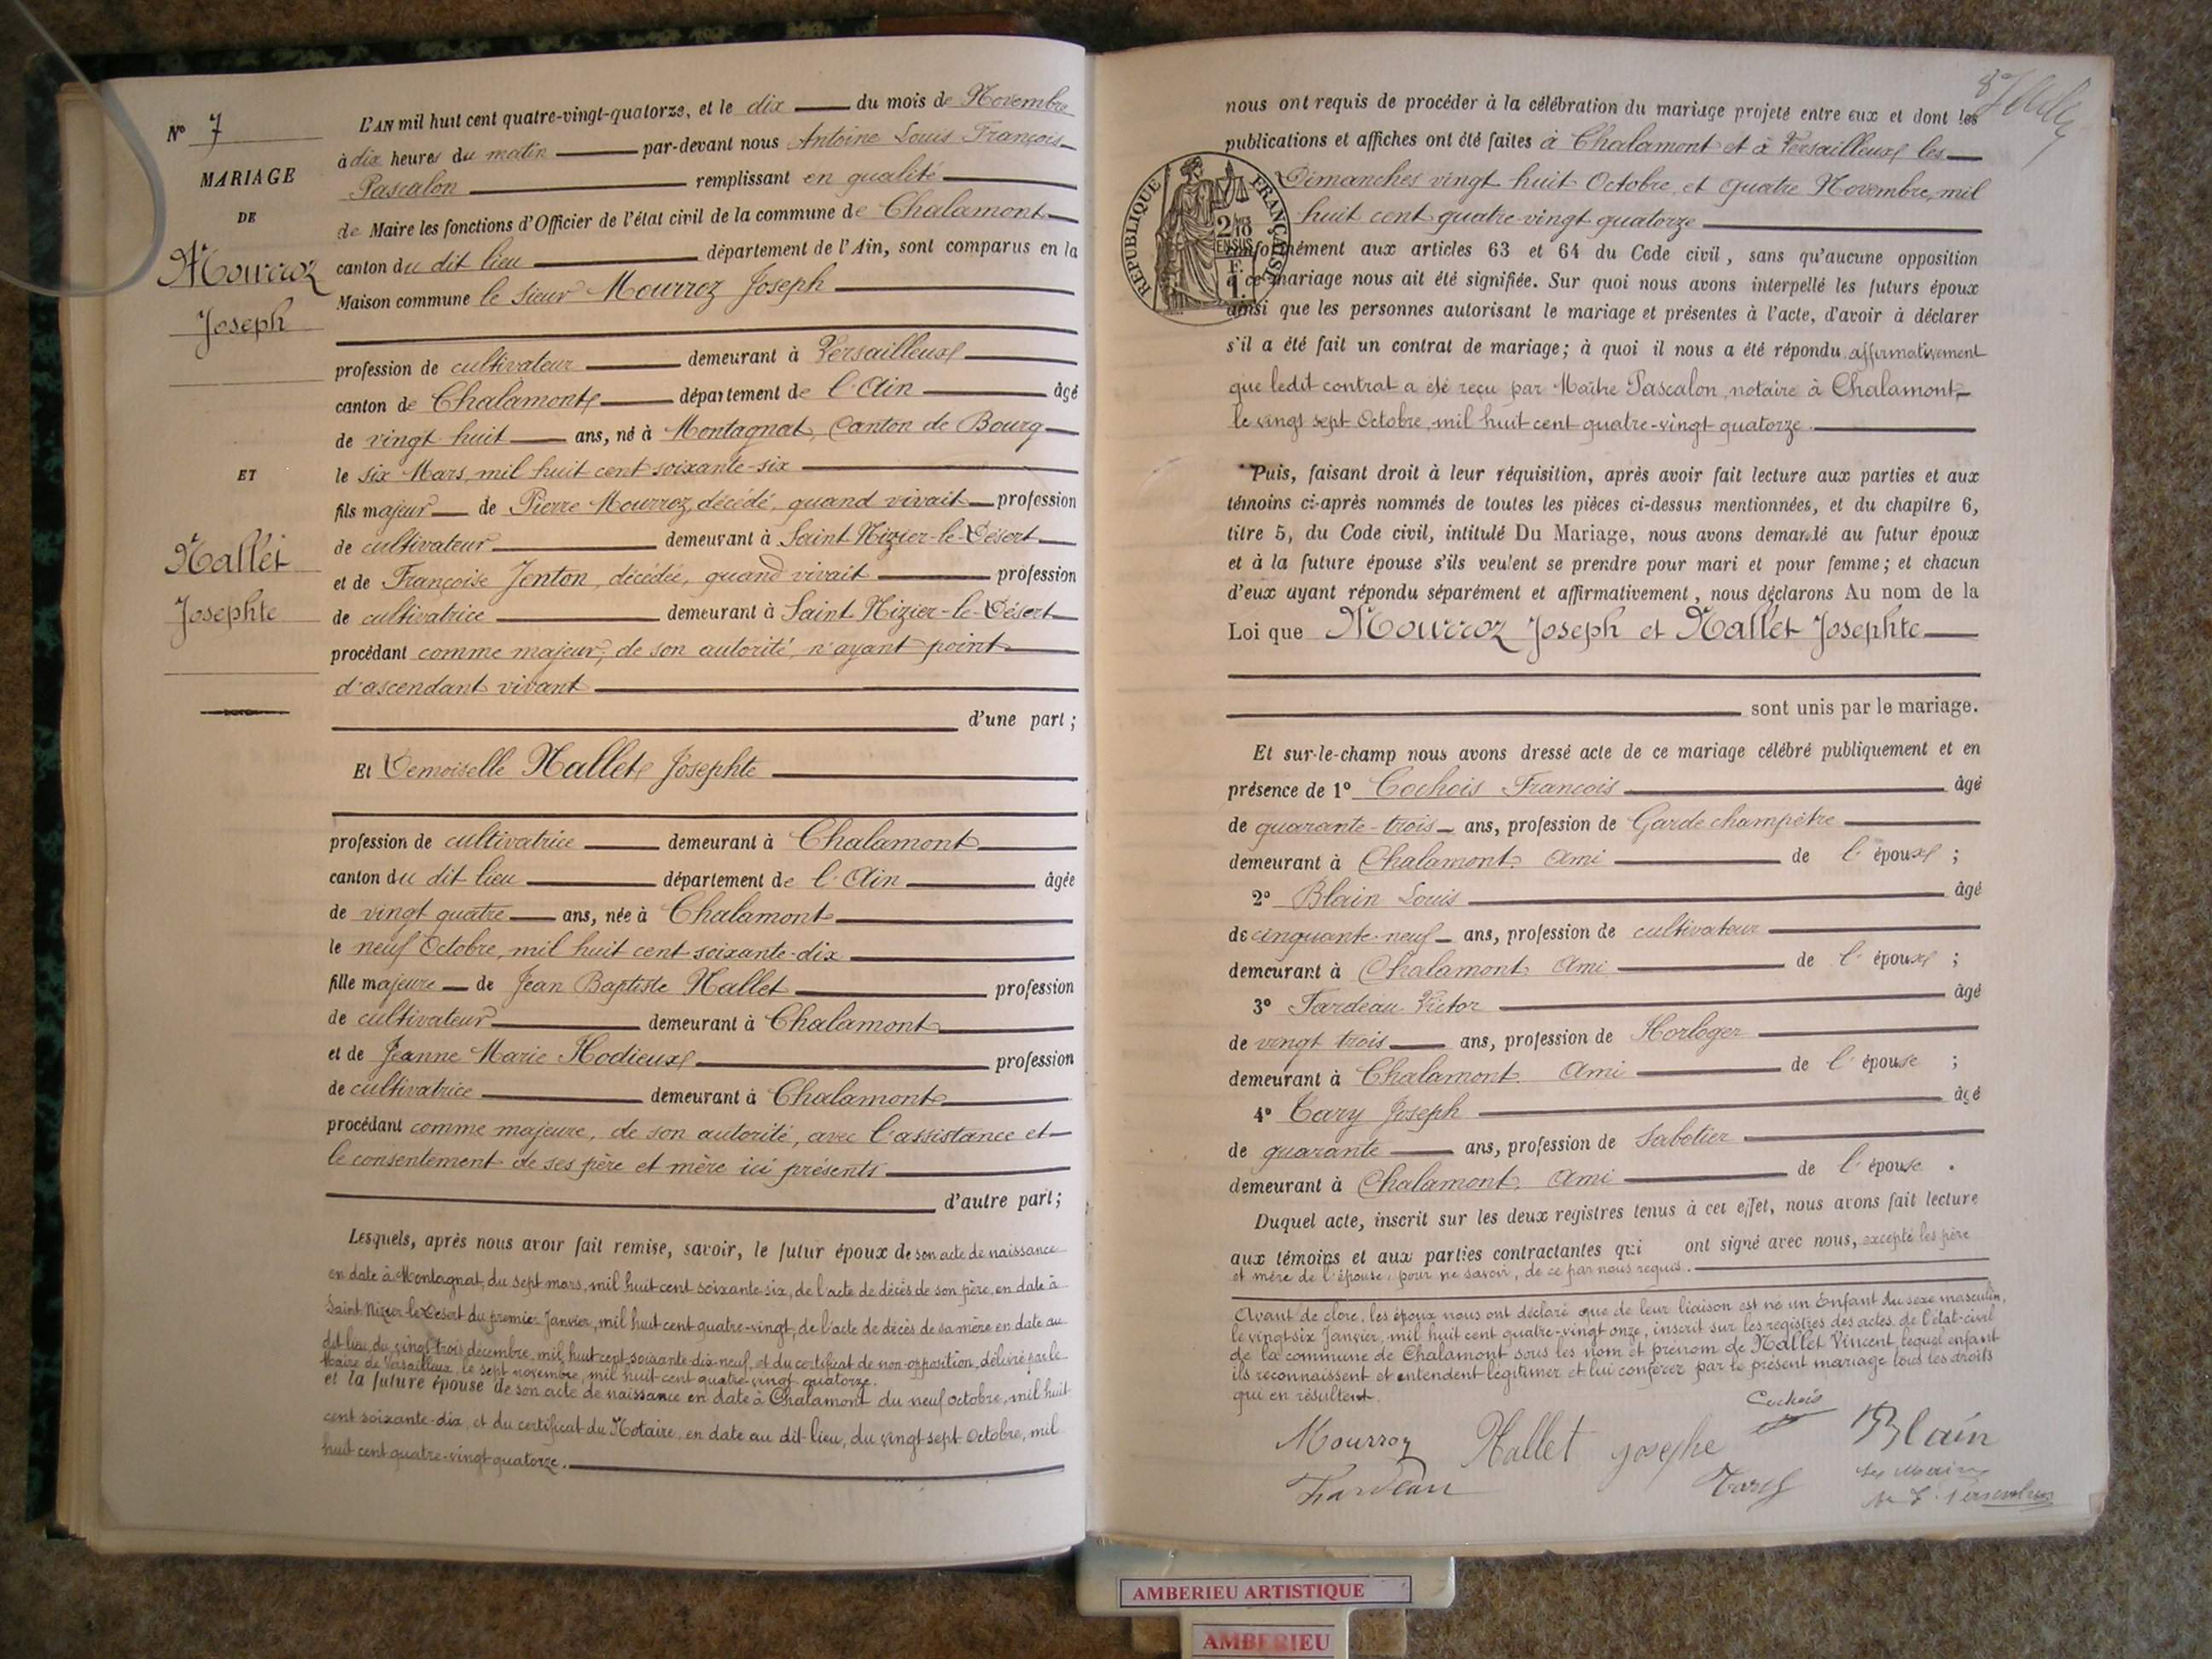 N° 7
MARIAGE
DE
Mourroz
Joseph
ET
Nallet
Josephte
L'AN mil huit cent quatre-vingt-quatorze, et le dix du mois de Novembre
à dix heures du matin par-devant nous Antoine Louis François
Pascalon remplissant en qualité
de Maire les fonctions d'Officier de l'état civil de la commune de Chalamont
canton du dit lieu département de l'Ain, sont comparus en la
Maison commune le sieur Mourroz Joseph
profession de cultivateur demeurant à Versailleux
canton de Chalamont département de l'Ain âgé
de vingt huit ans, né à Montagnat, Canton de Bourg
le six Mars, mil huit cent soixante-six
fils majeur de Pierre Mourroz, décédé, quand vivait profession
de cultivateur demeurant à Saint Nizier-le-Désert
et de Françoise Jenton, décédée, quand vivait profession
de cultivatrice demeurant à Saint Nizier-le-Désert
procédant comme majeur, de son autorité, n'ayant point
d'ascendant vivant
d'une part ;
Et Demoiselle Nallet Josephte
profession de cultivatrice demeurant à Chalamont
canton du dit lieu département de l'Ain âgée
de vingt quatre ans, née à Chalamont
le neuf Octobre, mil huit cent soixante-dix
fille majeure de Jean Baptiste Nallet profession
de cultivateur demeurant à Chalamont
et de Jeanne Marie Hodieux profession
de cultivatrice demeurant à Chalamont
procédant comme majeure, de son autorité, avec l'assistance et
le consentement de ses père et mère ici présents
d'autre part ;
Lesquels, après nous avoir fait remise, savoir, le futur époux de son acte de naissance
en date à Montagnat, du sept mars, mil huit cent soixante six, de l'acte de décès de son père, en date à
Saint Nizier le Désert du premier Janvier, mil huit cent quatre-vingt, de l'acte de décès de sa mère en date au
dit lieu du vingt trois décembre, mil huit cent soixante dix neuf, et du certificat de non-opposition, délivré par le
Maire de Versailleux, le sept novembre, mil huit cent quatre vingt quatorze.
et la future épouse de son acte de naissance en date à Chalamont du neuf octobre, mil huit
cent soixante-dix, et du certificat du Notaire, en date au dit-lieu, du vingt-sept Octobre, mil
huit cent quatre-vingt-quatorze.
nous ont requis de procéder à la célébration du mariage projeté entre eux et dont les
publications et affiches ont été faites à Chalamont et à Versailleux les
Dimanches vingt huit Octobre et quatre Novembre, mil
huit cent quatre-vingt quatorze
conformément aux articles 63 et 64 du Code civil, sans qu'aucune opposition
à ce mariage nous ait été signifiée. Sur quoi nous avons interpellé les futurs époux
ainsi que les personnes autorisant le mariage et présentes à l'acte, d'avoir à déclarer
s'il a été fait un contrat de mariage ; à quoi il nous a été répondu affirmativement
que ledit contrat a été reçu par Maître Pascalon, notaire à Chalamont,
le vingt sept Octobre, mil huit cent quatre-vingt quatorze.
REPUBLIQUE FRANÇAISE
Puis, faisant droit à leur réquisition, après avoir fait lecture aux parties et aux
témoins ci-après nommés de toutes les pièces ci-dessus mentionnées, et du chapitre 6,
titre 5, du Code civil, intitulé Du Mariage, nous avons demandé au futur époux
et à la future épouse s'ils veulent se prendre pour mari et pour femme ; et chacun
d'eux ayant répondu séparément et affirmativement, nous déclarons Au nom de la
Loi que Mourroz Joseph et Nallet Josephte
sont unis par le mariage.
Et sur-le-champ nous avons dressé acte de ce mariage célébré publiquement et en
présence de 1° Cochois Francois âgé
de quarante-trois ans, profession de Garde champêtre
demeurant à Chalamont. ami de l'époux ;
2° Blain Louis âgé
de cinquante-neuf ans, profession de cultivateur
demeurant à Chalamont. ami de l'époux ;
3° Tardeau Victor âgé
de vingt trois ans, profession de Horloger
demeurant à Chalamont. ami de l'épouse ;
4° Cary Joseph âgé
de quarante ans, profession de Sabotier
demeurant à Chalamont. ami de l'épouse .
Duquel acte, inscrit sur les deux registres tenus à cet effet, nous avons fait lecture
aux témoins et aux parties contractantes qui ont signé avec nous, excepté les père
et mère de l'épouse, pour ne savoir, de ce par nous requis.
Avant de clore, les époux nous ont déclaré que de leur liaison est né un Enfant du sexe masculin,
le vingt six Janvier, mil huit cent quatre-vingt onze, inscrit sur les registres des actes de l'état-civil
de la commune de Chalamont sous les nom et prénom de Nallet Vincent, lequel enfant
ils reconnaissent et entendent légitimer et lui conférer par le présent mariage tous les droits
qui en résultent.
Cochois
Mourroz Nallet josephe Blain
Tardeau
AMBERIEU ARTISTIQUE
AMBERIEU